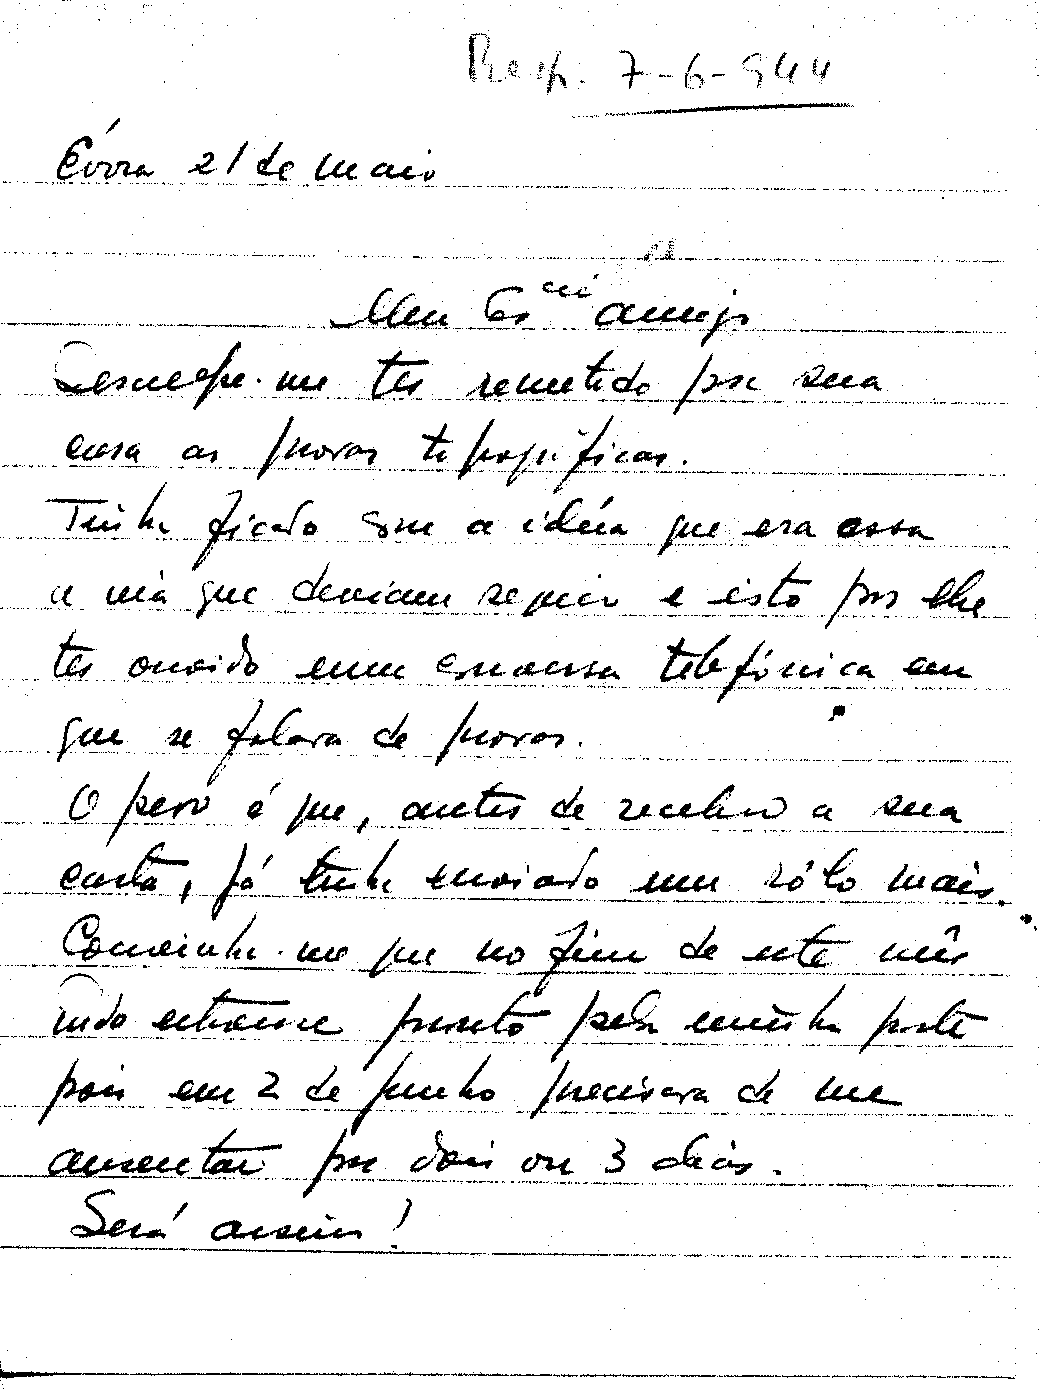 Resp. 7-6-944
Évora 21 de maio
Meu Exmo amigo
Desculpe-me ter remetido por sua
casa as provas tipográficas.
Tinha ficado com a idéia que era essa
a via que deviam seguir e isto por lhe
ter ouvido numa conversa telefónica em
que se falara de provas.
O peor é que, antes de receber a sua
carta, já tinha enviado um rôlo mais.
Convinha-me que no fim de este mês
tudo estivesse pronto pela minha parte
pois em 2 de junho precisara de me
ausentar por dois ou 3 dias.
Será assim!